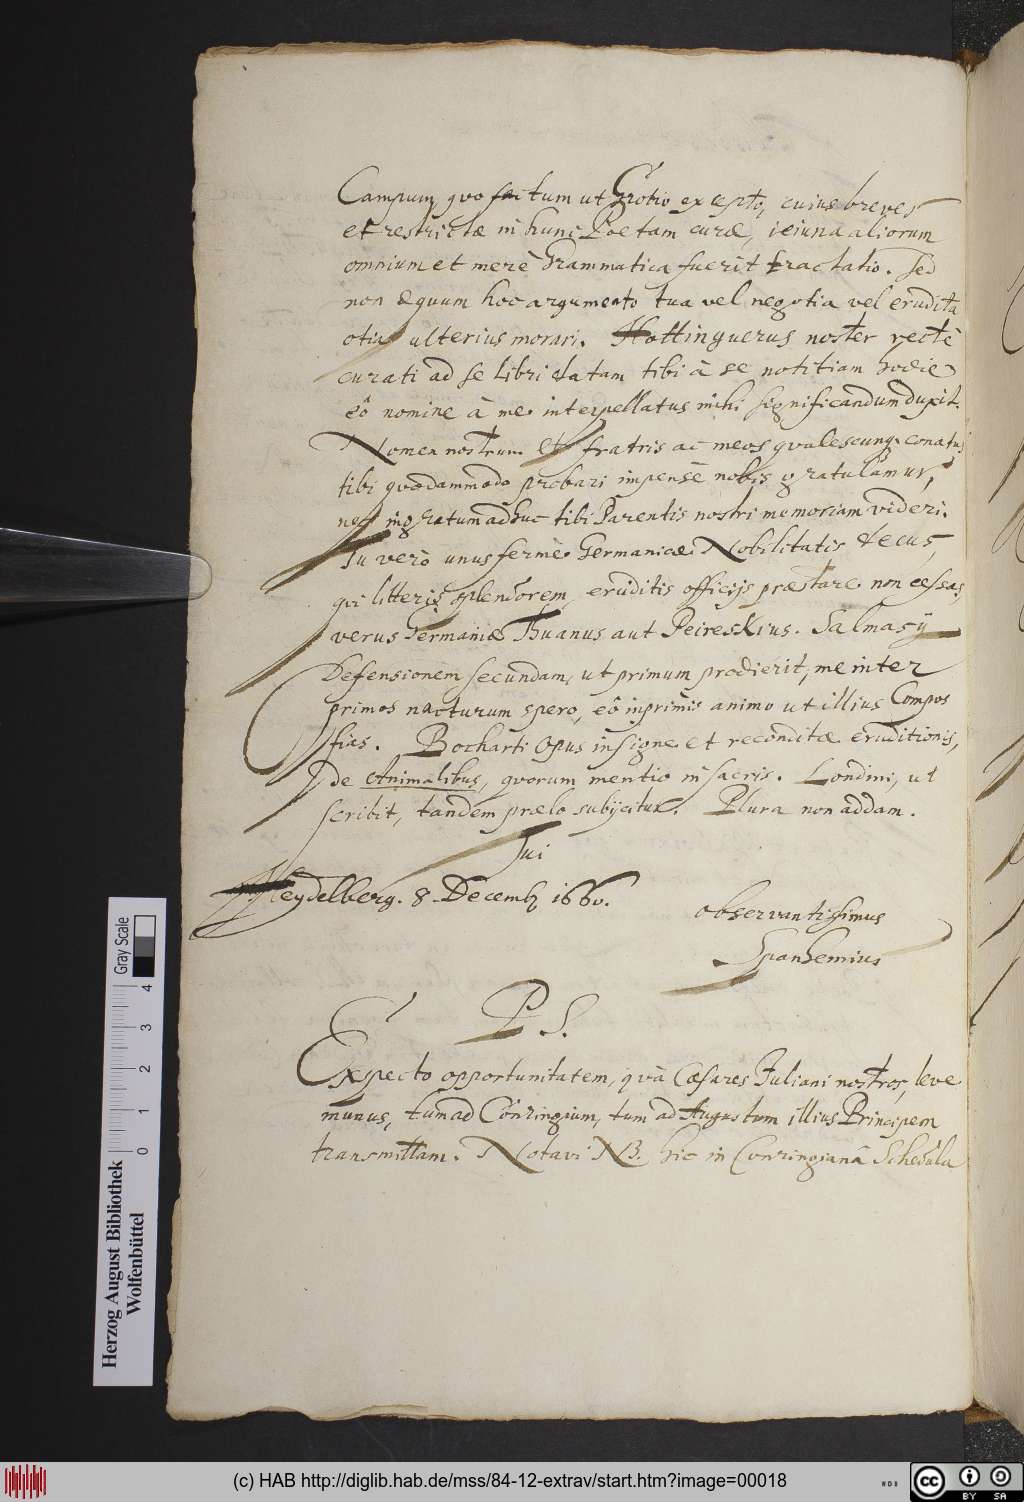 Campum, quo factum ut Grotio excepto, cuius breves
et restrictæ in hunc Poetam curæ, ieiuna aliorum
omnium et merè Grammatica fuerit tractatio. Sed
non æquum hoc argumento tua vel negotia vel erudita
otia ulterius morari. Hottinguerus noster rectè
curati ad se libri datam tibi à se notitiam hodie
eô nomine à me interpellatus mihi significandum duxit.
Nomen nostrum et fratris ac meos qualescunq. conatus
tibi quodammodo probari impensè nobis gratulamur,
nec ingratum adhuc tibi Parentis nostri memoriam videri.
Tu verò unus fermè Germanicæ Nobilitatis decus,
qui litteris splendorem, eruditis officijs præstare non cessas,
verus Germaniæ Thuanus aut Peireskius. Salmasij
Defensionem secundam, ut primum prodierit, me inter
primos nacturum spero, eô inprimis animo ut illius Compos
fias. Bocharti Opus insigne et reconditæ eruditionis,
de Animalibus, quorum mentio in sacris. Londini, ut
scribit, tandem prælo subijcitur. Plura non addam.
Tui
Heydelberg. 8. Decemb 1660.
observantissimus
Spanhemius
P. S.
Exspecto opportunitatem, quâ Cæsares Juliani nostros, leve
munus, tum ad Conringium, tum ad Augustum illius Principem
transmittam. Notavi NB. hic in Conringianâ Schedula
Herzog August Bibliothek
Wolfenbüttel
0 1 2 3 4
Gray Scale
(c) HAB http://diglib.hab.de/mss/84-12-extrav/start.htm?image=00018
cc
BY SA